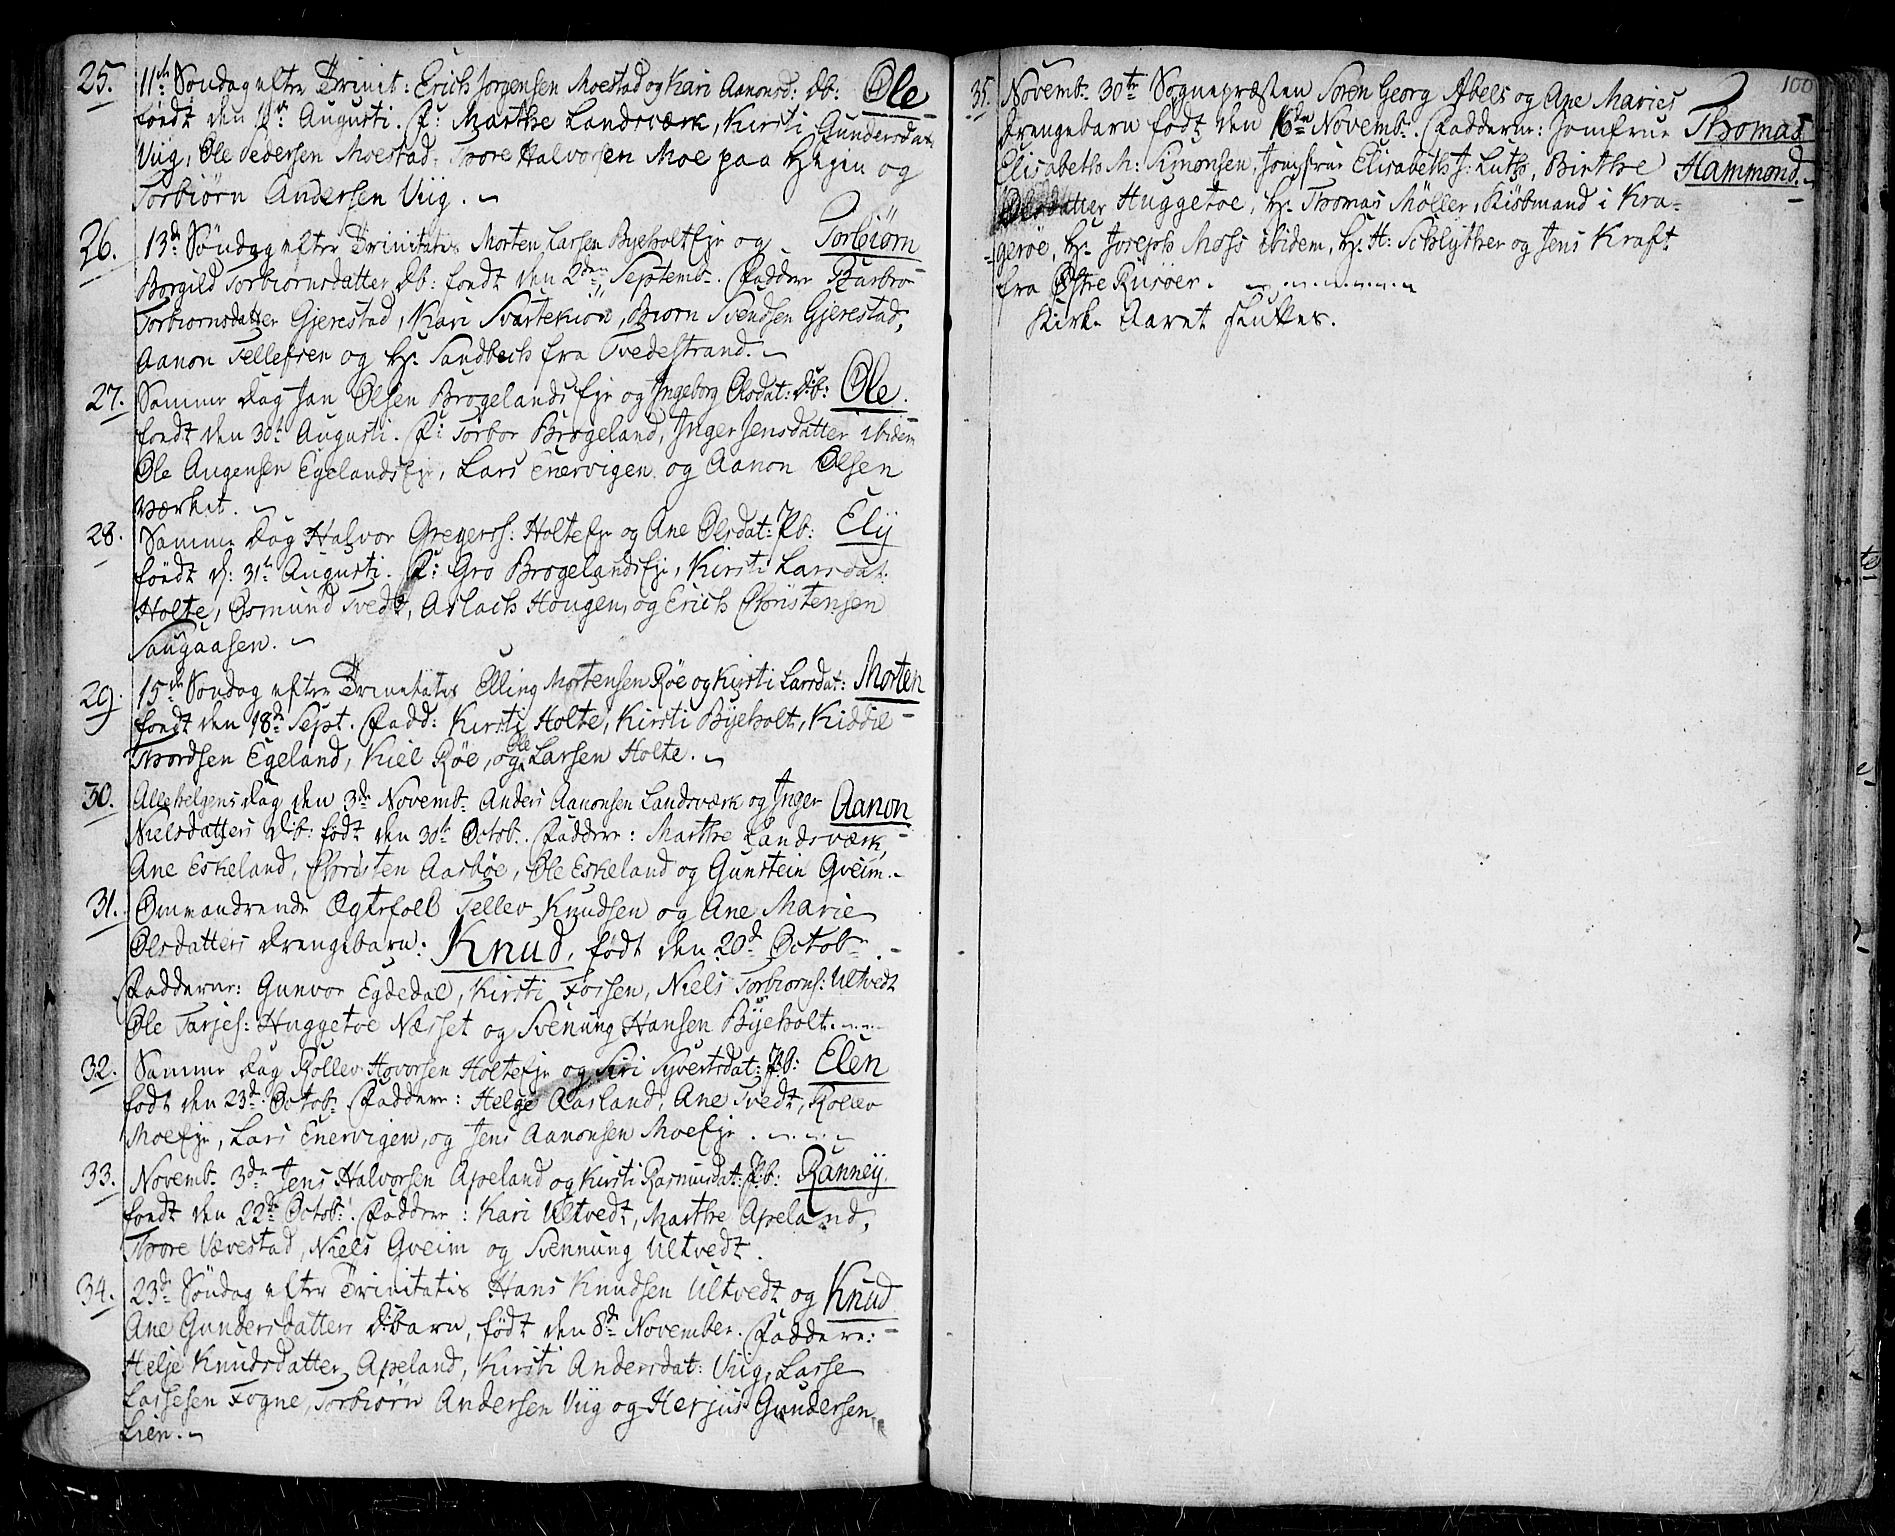 25. 11te Søndag efter Trinit: Erich Jorgensen Moestad og Kari Aanonsd: Db: Ole
født den Augusti. F: Marthe Landsværk, Kirsti Gundersdat
Viig, Ole Pedersen Moestad, Tore Halvorsen Moe paa Hejen og
Torbiørn Andersen Viig.
26. 13de Søndag efter Trinitatis Morten Larsen Byeholtejr og Torbiørn
Borgild Torbiornsdatter Db: født den 2den Septemb. Faddere Barbro
Torbiornsdatter Gjerestad, Kari Svartekiøn, Biørn Svendsen Gjerestad,
Aanon Tellefsen og Hr. Sandbech fra Tvedestrand.
27. Samme Dag Jan Olsen Brogelandsejr og Ingeborg Olsdat: Db: Ole.
født den 30te Augusti. F: Torbor Brogeland, Inger Jensdatter ibidem
Ole Augensen Egelandsejr, Lars Enervigen og Aanon Olsen
Værket.
28. Samme Dag Halvor Gregerss: Holtejr og Ane Olsdat: Pb: Elij
født d: 31te Augusti. F: Gro Brogelandsejr, Kirsti Larsdat:
Holte, Osmund Tvedt, Aslach Hougen, og Erich Christensen
Saugaasen.
29. 15de Søndag efter Trinitatis Elling Mortensen Røe og Kirsti Larsdat: Morten
født den 18de Sept. Fadd: Kirsti Holte, Kirsti Byeholt, Kiddil
Thordsen Egeland, Kiel Røe, og Ole Larsen Holte.
30. Allehelgensdag den 3de Novemb. Anders Aanonsen Landsværk og Inger Aanon
Nielsdatters Db: født den 30te Octob. Faddere: Marthe Landsværk,
Ane Eskeland, Christen Aasbøe, Ole Eskeland og Gunstein Gveim.
31. Omvandrende Ægtefolk Tellev Knudsen og Ane Marie
Olsdatters Drengebarn: Knud, født den 20de Octob.
Fadderne: Gunvor Egdedal, Kirsti Fossen, Niels Torbiorns: Ultvedt
Ole Tarjes: Huggetoe Næsset og Svenung Hansen Byeholt.
32. Samme Dag Rollev Hovorsen Holtejr og Siri Syvertsdat: Pb: Elen
født den 23de Octob. Faddere: Helge Aasland, Ane Tvedt, Rolev
Moejr, Lars Enervigen, og Jens Aanonsen Moejr.
33. Novemb. 3de Jens Halvorsen Apeland og Kirsti Rasmusdat: Pb: Ranneij.
født den 22de Octob. Faddere: Kari Ultvedt, Marthe Apeland,
Thore Vævestad, Niels Gveim og Svennung Ultvedt.
34. 23de Søndag efter Trinitatis Hans Knudsen Ultvedt og Knud
Ane Gundersdatters Dbarn, født den 8de November. Faddere:
Helje Knudsdatter Apeland, Kirsti Andersdat: Viig, Lasse
Lassesen Fogne, Torbiørn Andersen Viig og Herjus Gundersen
Lien.
100
35. Novemb. 30te Sognepræsten Soren Georg Abels og Ane Maries
Drengebarn født den 16de Novemb. Fadderne: Jomfrue Thomas
Elisabeth M: Simonsen, Jomfrue Elisabeth J: Lutz, Birthe Hammond.
Olsdatter Huggetoe, Hr. Thomas Møller, Kiøbmand i Kra-
gerøe, Hr. Joseph Moss ibidem, Hr. H: Schlyther og Jens Kraft
fra Østre Riisøer.
Kirke Aaret sluttes.